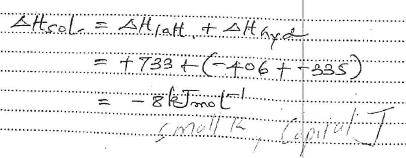 ΔHsol. = ΔHlatt. + ΔHhyd
= +733 + (-406 + -335)
= -8kJmol⁻¹
small k, Capital J